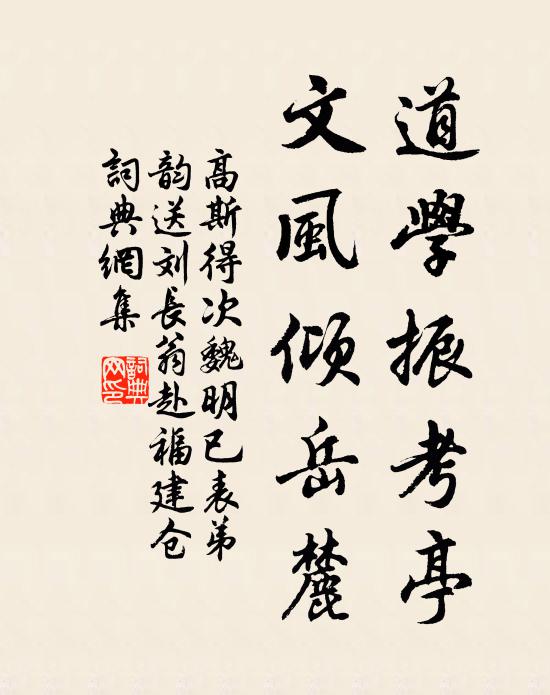 道學振考亭
文風傾岳麓
高斯得次魏明已表弟
韵送刘長翁赴福建仓
詞典網集
詞典網印